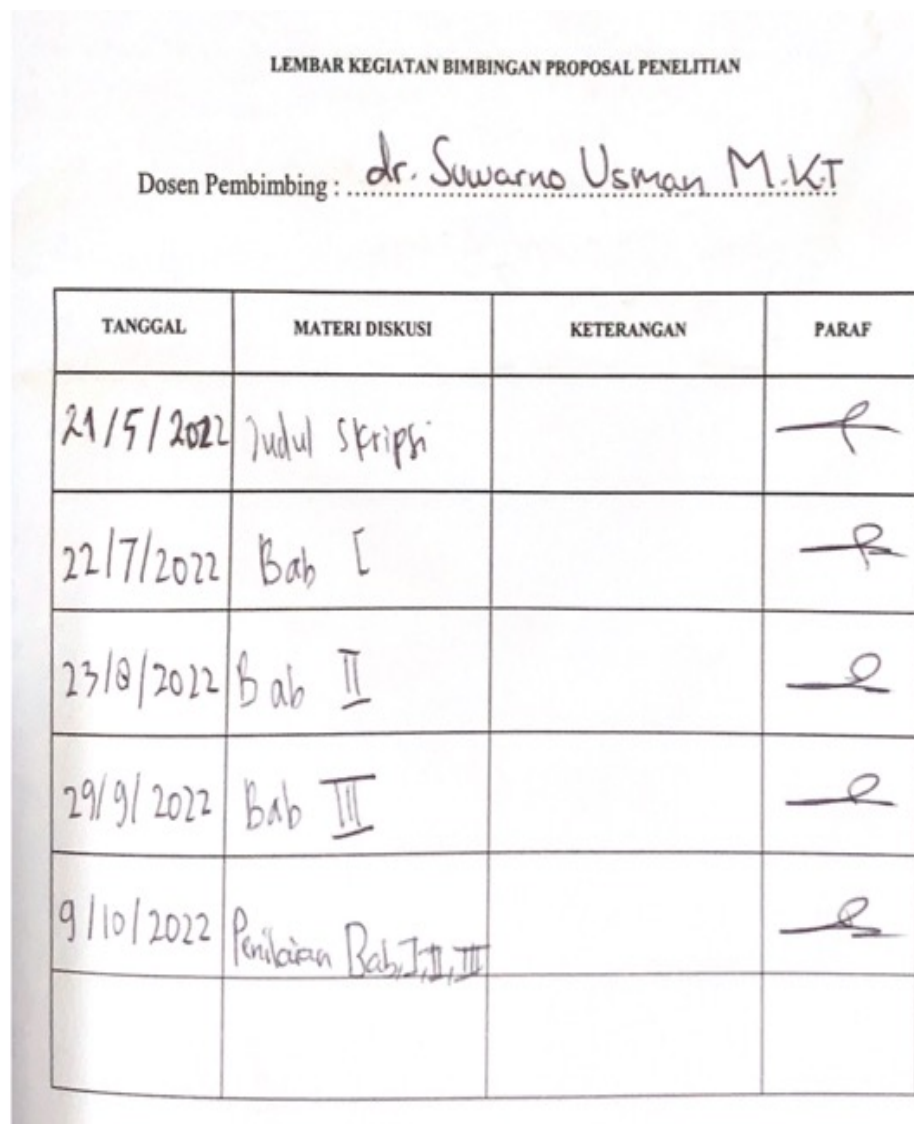 LEMBAR KEGIATAN BIMBINGAN PROPOSAL PENELITIAN
Dosen Pembimbing : dr. Suwarno Usman M.KT
TANGGAL MATERI DISKUSI KETERANGAN PARAF
21/5/2022 Judul Skripsi
22/7/2022 Bab I
23/8/2022 Bab II
29/9/2022 Bab III
9/10/2022 Penilaian Bab, I, II, III